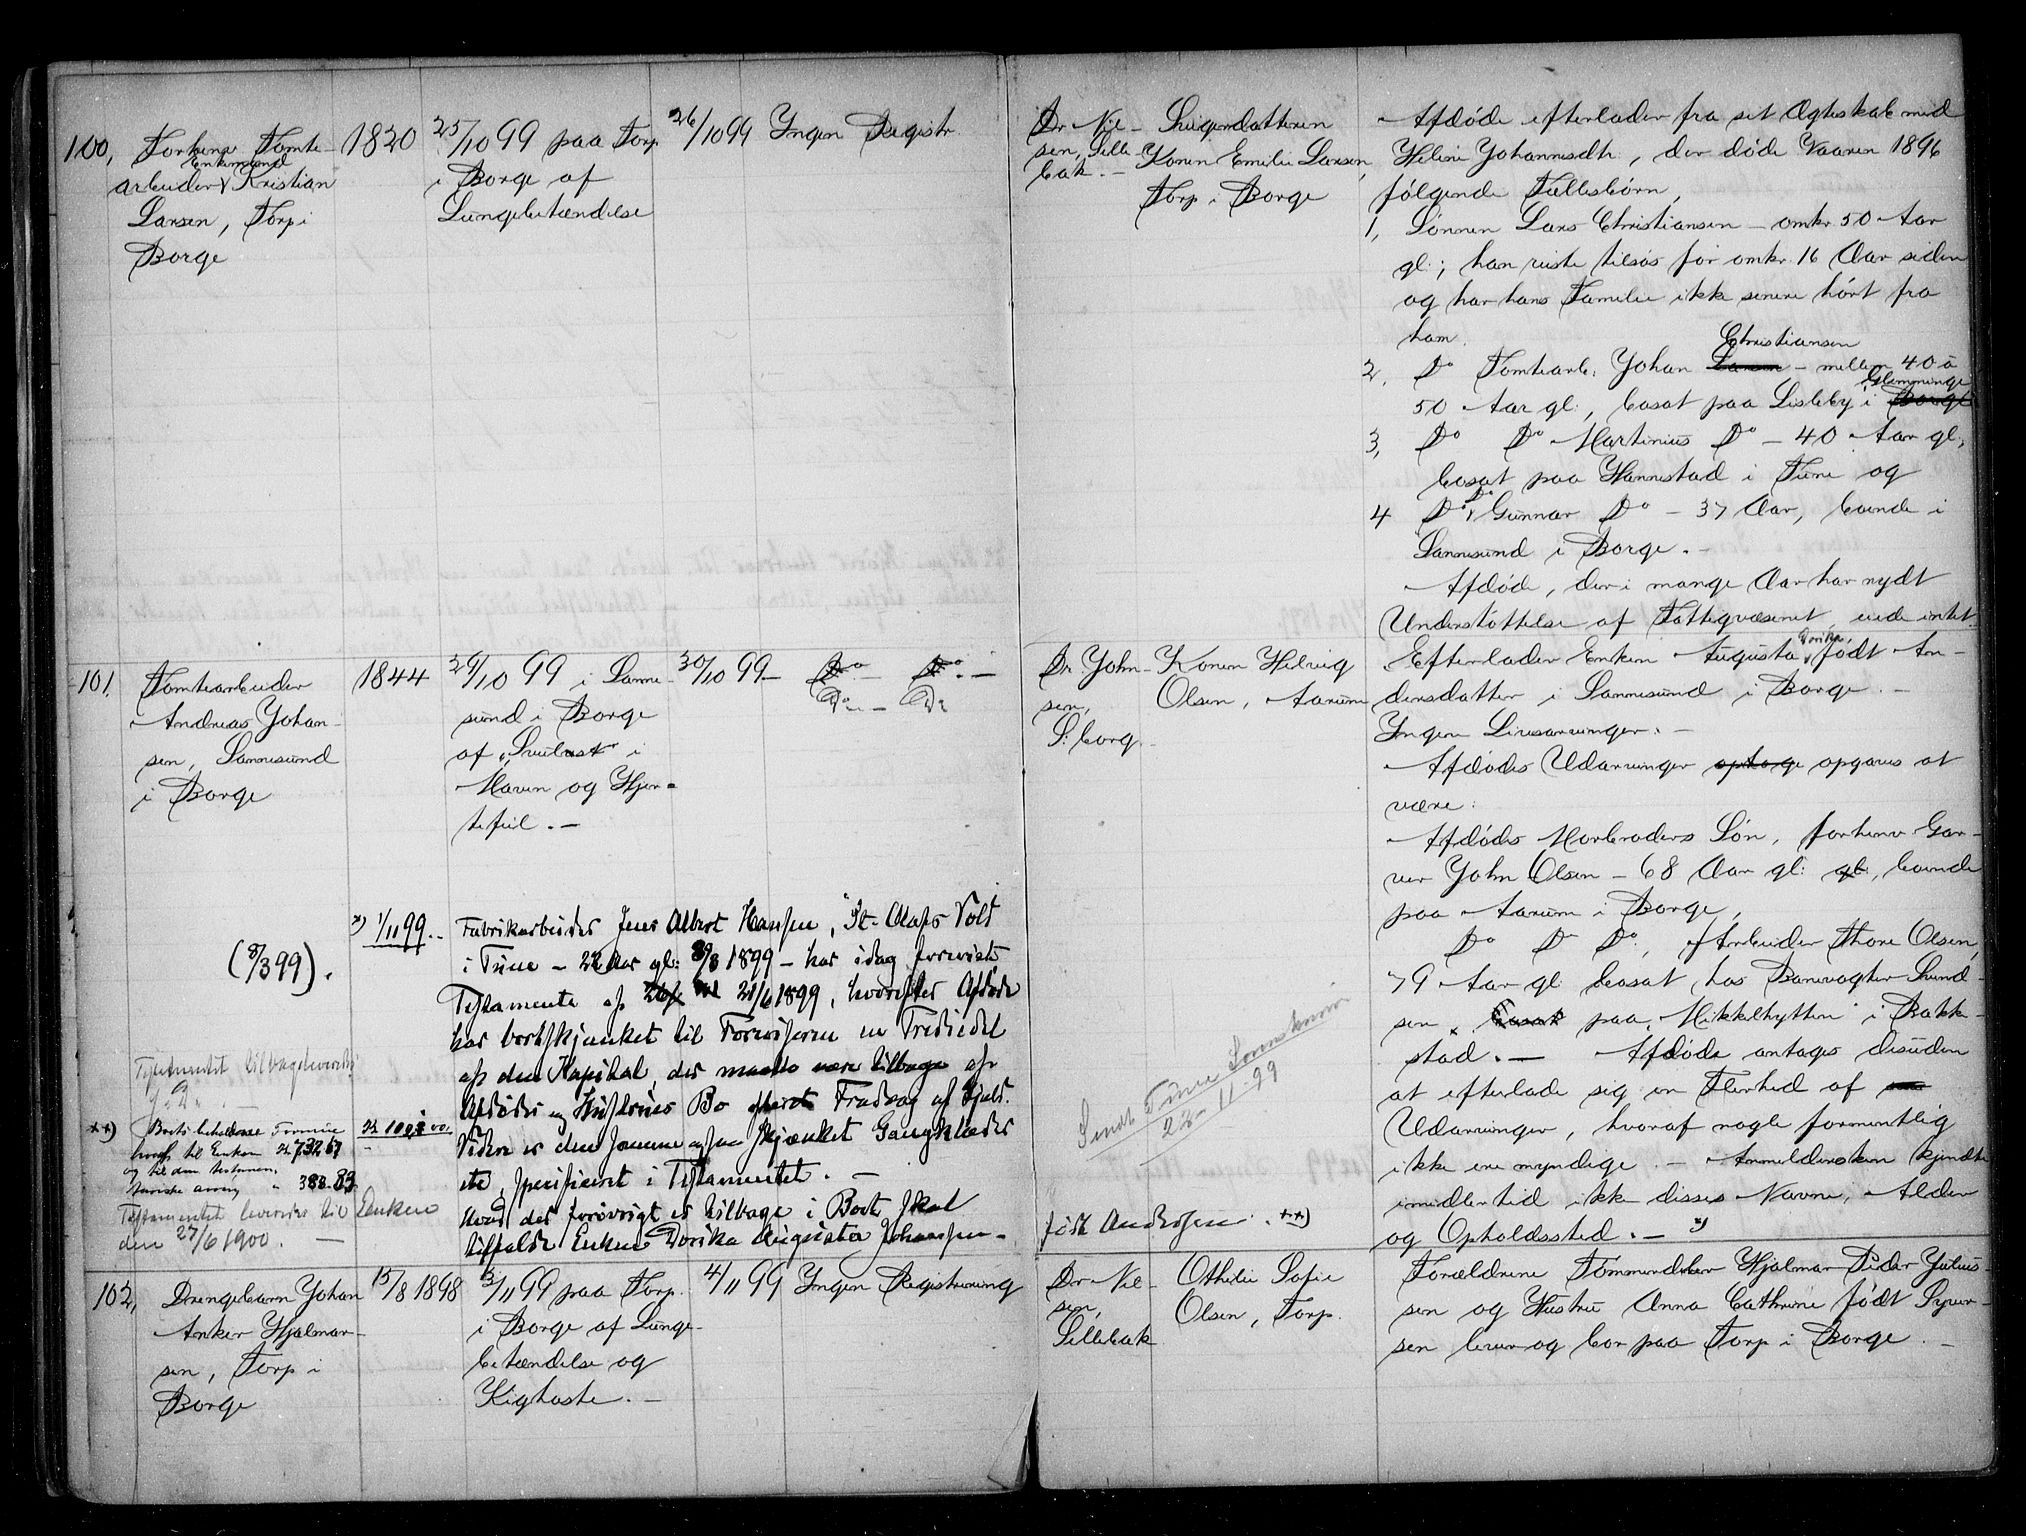 100,
Forhenv. Tomte-
Enkemand
arbeider Kristian
Larsen, Torp i
Borge
1820
25/10 99 paa Torp
i Borge af
Lungebetændelse
26/10 99
Ingen Registr.
Dr Niel-
sen, Selle-
bak. -
Svigerdatteren
Konen Emilie Larsen,
Torp i Borge
Afdøde efterlader fra sit Ægteskab med
Helene Johannesdtr., der døde Vaaren 1896
følgende Fællesbørn,
1, Sønnen Lars Christiansen - omkr 50 Aar
gl.; han reiste tilsøs for omkr. 16 Aar siden
og har hans Familie ikke senere hørt fra
ham.
Christiansen
2, Do Tomtearb: Johan Larsen - mellem 40 a
Glemminge
50 Aar gl:, bosat paa Lisleby i Borge
3, Do Do Martinius Do - 40 Aar gl,
bosat paa Hannestad i Tune og
Do
4 Do Gunnar Do - 37 Aar, boende i
Sannesund i Borge. -
Afdøde, der i mange Aar har nydt
Understøttelse af Fattigvæsenet, eiede intet.
101,
Tomtearbeider
Andreas Johan-
sen, Sannesund
i Borge
1844
29/10 99 i Sanne-
sund i Borge
af "Svulst" i
Maven og Hjer-
tefeil. -
30/10 99 -
Do - Do. -
Do - Do
Dr John-
sen,
S: borg. -
Konen Helvig
Olsen, Aarum
Dorika
Efterlader Enken Augusta født An-
dersdatter i Sannesund i Borge. -
Ingen Livsarvinger. -
Afdødes Udarvinger optage opgaves at
være:
Afdødes Morbroders Søn, forhenv Gar-
ver John Olsen - 68 Aar gl: gl:, boende
paa Aarum i Borge,
Do Do Do, Arbeider Thore Olsen,
79 Aar gl: bosat hos Banevogter Svend-
sen, bosat paa Mikkelhytten i Bakke-
stad. - Afdøde antages desuden
at efterlade sig en Flerhed af
Udarvinger, hvoraf nogle formentlig
ikke ere myndige. - Anmeldersken kjendte
imidlertid ikke disses Navne, Alder
og Opholdssted. - x)
(8/3 99).
x) 1/11 99..
Fabrikarbeider Jens Albert Hansen, St. Olafs Vold
i Tune - 22 Aar gl: 1899 - har idag forevist
Testamente af 21/6 1899, hvorefter Afdøde
har bortskjænket til Foreviseren en Trediedel
af den Kapital, der maatte være tilbage af
Afdødes og Hustrues Bo efter Fradrag af Gjæld.
Videre er den samme ogsaa skjænket Gangklæder
etc, specificeret i Testamentet. -
Hvad der forøvrigt er tilbage i Boet skal
tilfalde Enken Dorika Augusta Johansen -
født Andersen. xx)
Testamentet tilbageleveret
xx) Boets beholdne Formue
hvoraf til Enken Kr 732 67
og til den testamen-
tariske arving " 388.89
Testamentet leveret til Enken
den 27/6 1900. -
Sendt Tune Sorenskriveri
22-11-99
102,
Drengebarn Johan
Anker Hjalmar-
sen, Torp i
Borge
15/8 1898
3/11 99 paa Torp
i Borge af Lunge-
betændelse og
Kighoste. -
4/11 99
Ingen Registrering
Dr Niel-
sen,
Sellebak
Othilie Sofie
Olsen, Torp.
Forældrene Tømmerdeler Hjalmar Peder Julius-
sen og Hustru Anna Cathrine født Syver-
sen lever og bor paa Torp i Borge. -